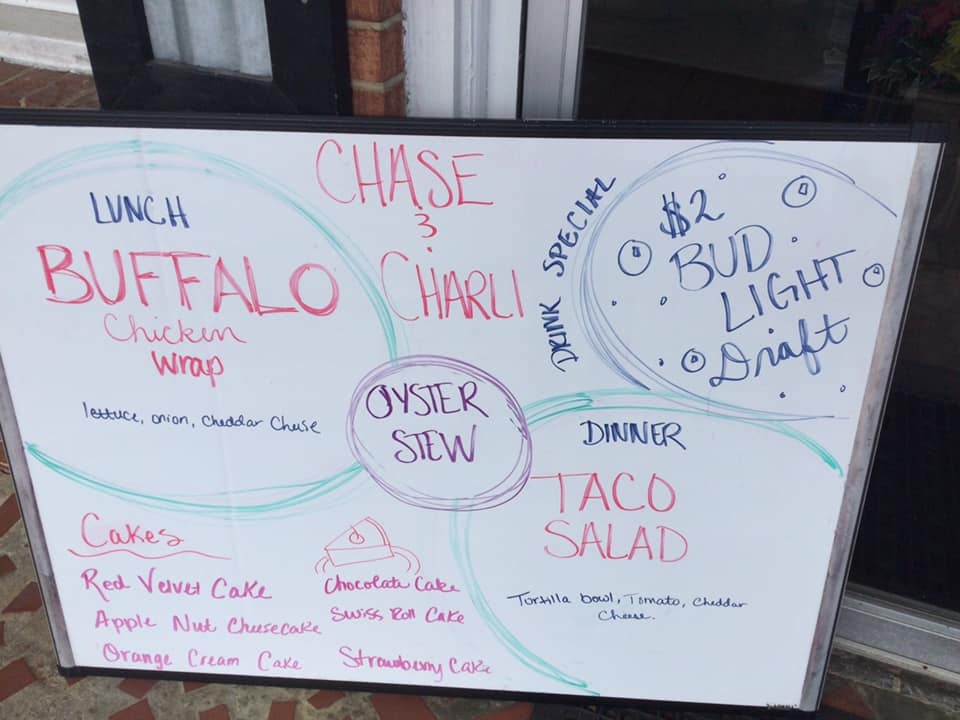 CHASE
&
CHARLI
LUNCH
BUFFALO
Chicken
Wrap
lettuce, onion, cheddar cheese
DRINK SPECIAL
$2
BUD
LIGHT
Draft
OYSTER
STEW
DINNER
TACO
SALAD
Tortilla bowl, Tomato, Cheddar
Cheese.
Cakes
Red Velvet Cake
Apple Nut Cheesecake
Orange Cream Cake
Chocolate Cake
Swiss Roll Cake
Strawberry Cake